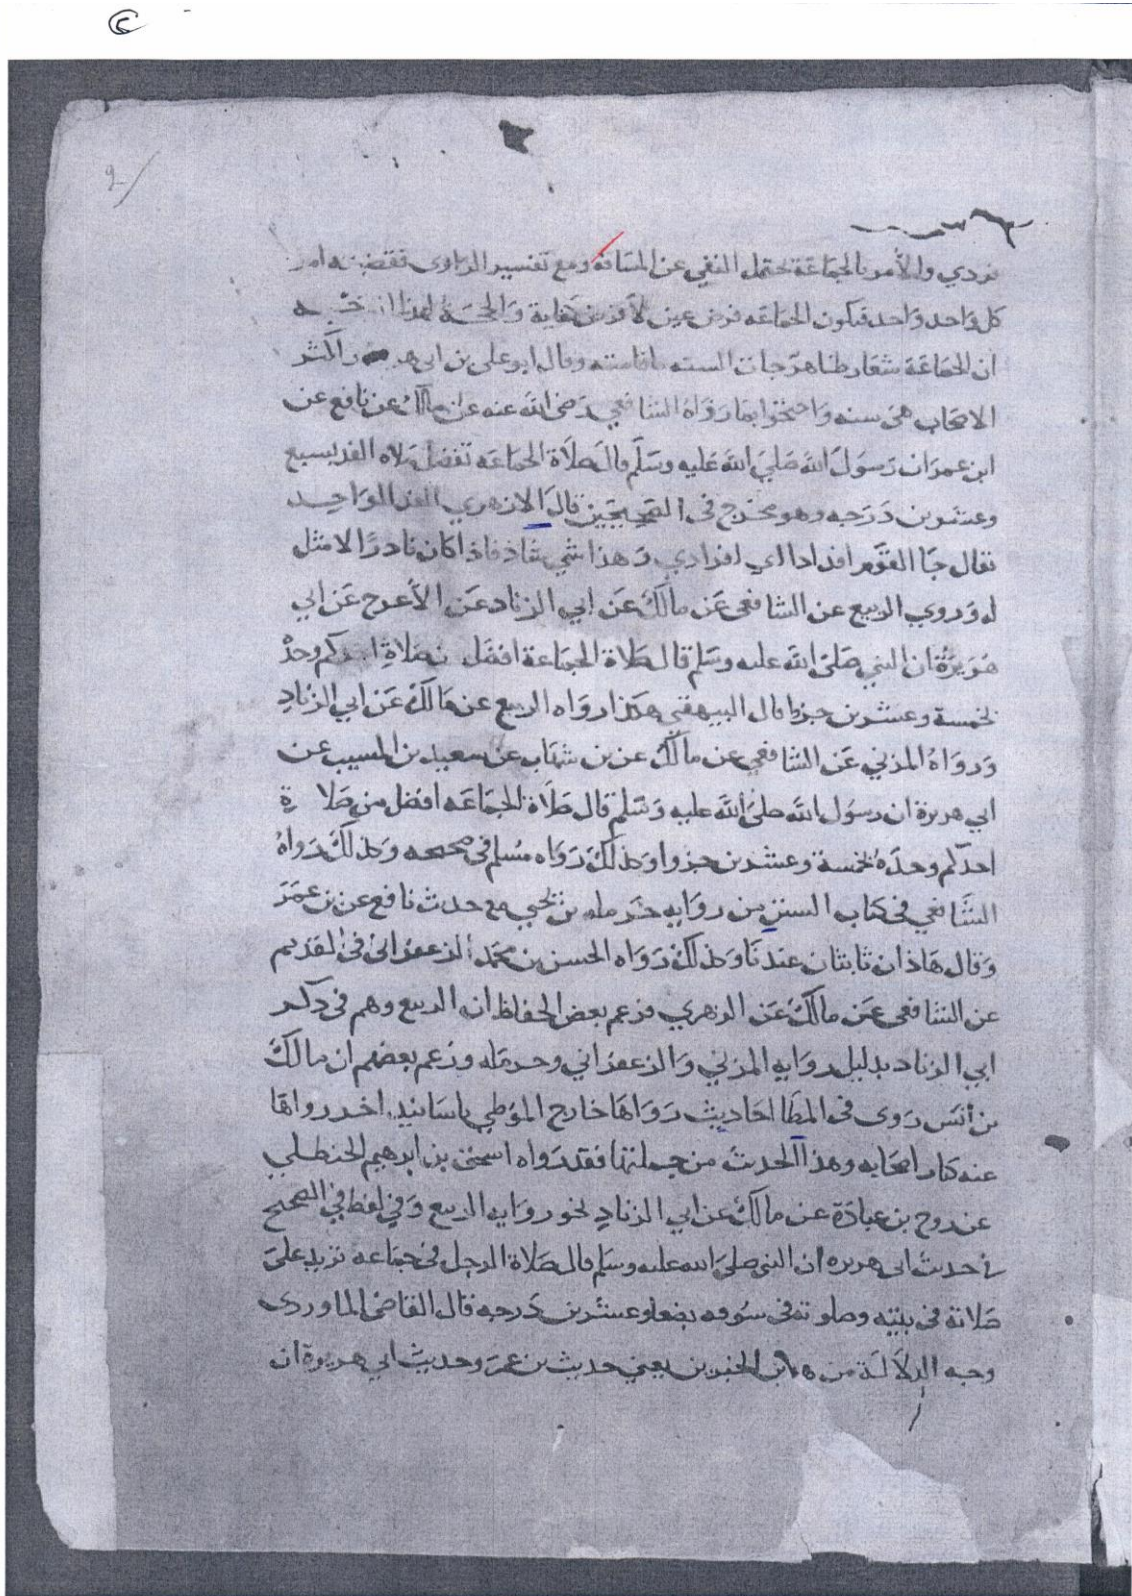 فردي والأمر بالجماعة يحتمل النفي عن المنافة ومع تفسير الراوي فقضيته امر
كل واحد واحد فتكون الجماعه فرض عين لا فرض كفاية والحجة لهذا
ان الجماعة شعار ظاهر جات السنه باقامته وقال ابو على بن ابى هريره واكثر
الاصحاب هى سنه واحتجوا بما رواه الشافعي رضى الله عنه عن مالك عن نافع عن
ابن عمر ان رسول الله صلى الله عليه وسلم قال صلاة الجماعه تفضل صلاه الفذ بسبع
وعشرين درجه وهو مخرج فى الصحيحين قال الازهري الفذ الواحد
تقال جا القوم افذاذا اي افرادي وهذا شي شاذ فاذا كان نادرا لا مثل
له وروي الربيع عن الشافعى عن مالك عن ابي الزناد عن الأعرج عن ابي
هريرة ان النبي صلى الله عليه وسلم قال صلاة الجماعة افضل من صلاة احدكم وحده
بخمسة وعشرين جزوا قال البيهقي هكذا رواه الربيع عن مالك عن ابي الزناد
ورواه المزني عن الشافعي عن مالك عن بن شهاب عن سعيد بن المسيب عن
ابي هريرة ان رسول الله صلى الله عليه وسلم قال صلاة الجماعه افضل من صلا ة
احدكم وحده بخمسة وعشرين جزوا وكذلك رواه مسلم في صحيحه وكذلك رواه
الشافعي فى كتاب السنن من روايه حرمله بن يحيى مع حديث نافع عن بن عمر
وقال هاذان ثابتان عندنا وكذلك رواه الحسن بن محمد الزعفرانى فى القديم
عن الشافعى عن مالك عن الزهري فزعم بعض الحفاظ ان الربيع وهم فى ذكر
ابي الزناد بدليل روايه المزني والزعفراني وحرمله وزعم بعضهم ان مالك
بن أنس روى فى المطا احاديث رواها خارج المؤطي باسانيد اخر رواها
عنه كبار اصحابه وهذا الحديث من جملتها فقد رواه اسحق بن ابرهيم الحنظلي
عن روح بن عبادة عن مالك عن ابي الزناد نحو روايه الربيع وفي لفظ في الصحيح
في حديث ابى هريره ان النبي صلى الله عليه وسلم قال صلاة الرجل فى جماعه تزيد على
صلاته فى بيته وصلوته فى سوقه بضعا وعشرين درجه قال القاضى الماوردى
وجه الدلالة من هذين الخبرين يعني حديث بن عمر وحديث ابي هريرة ان